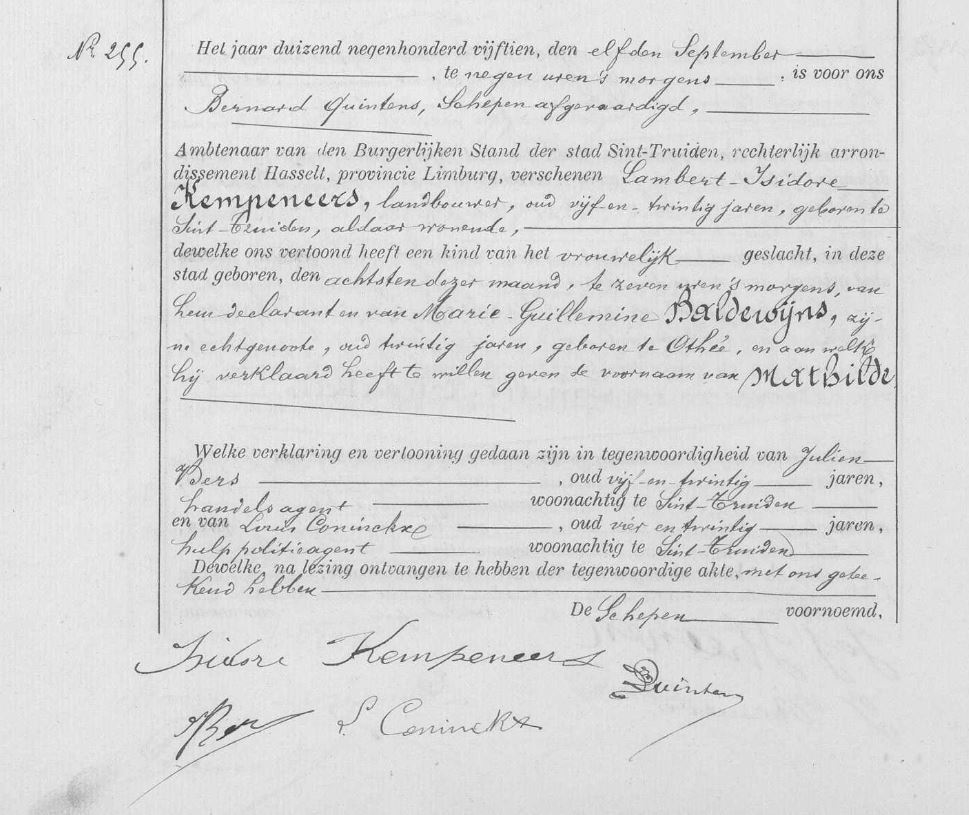 Nr 255.
Het jaar duizend negenhonderd vijftien, den elfden September
, te negen uren 's morgens , is voor ons
Bernard Quintens, Schepen afgevaardigd,
Ambtenaar van den Burgerlijken Stand der stad Sint-Truiden, rechterlijk arron-
dissement Hasselt, provincie Limburg, verschenen Lambert-Isidore
Kempeneers, landbouwer, oud vijf-en-twintig jaren, geboren te
Sint-Truiden, aldaar wonende,
dewelke ons vertoond heeft een kind van het vrouwelijk geslacht, in deze
stad geboren, den achtsten dezer maand, te zeven uren 's morgens, van
hem declarant en van Marie-Guillemine Baldewijns, zij-
ne echtgenoote, oud twintig jaren, geboren te Othée, en aan welk
hij verklaard heeft te willen geven de voornaam van Mathilde
Welke verklaring en vertooning gedaan zijn in tegenwoordigheid van Julien
Bers , oud vijf-en-twintig jaren,
handelsagent woonachtig te Sint-Truiden
en van Louis Coninckx , oud vier en twintig jaren,
hulppolitieagent woonachtig te Sint-Truiden
Dewelke, na lezing ontvangen te hebben der tegenwoordige akte, met ons getee-
kend hebben
De Schepen voornoemd,
Isidore Kempeneers
Quintens
JBers L. Coninckx